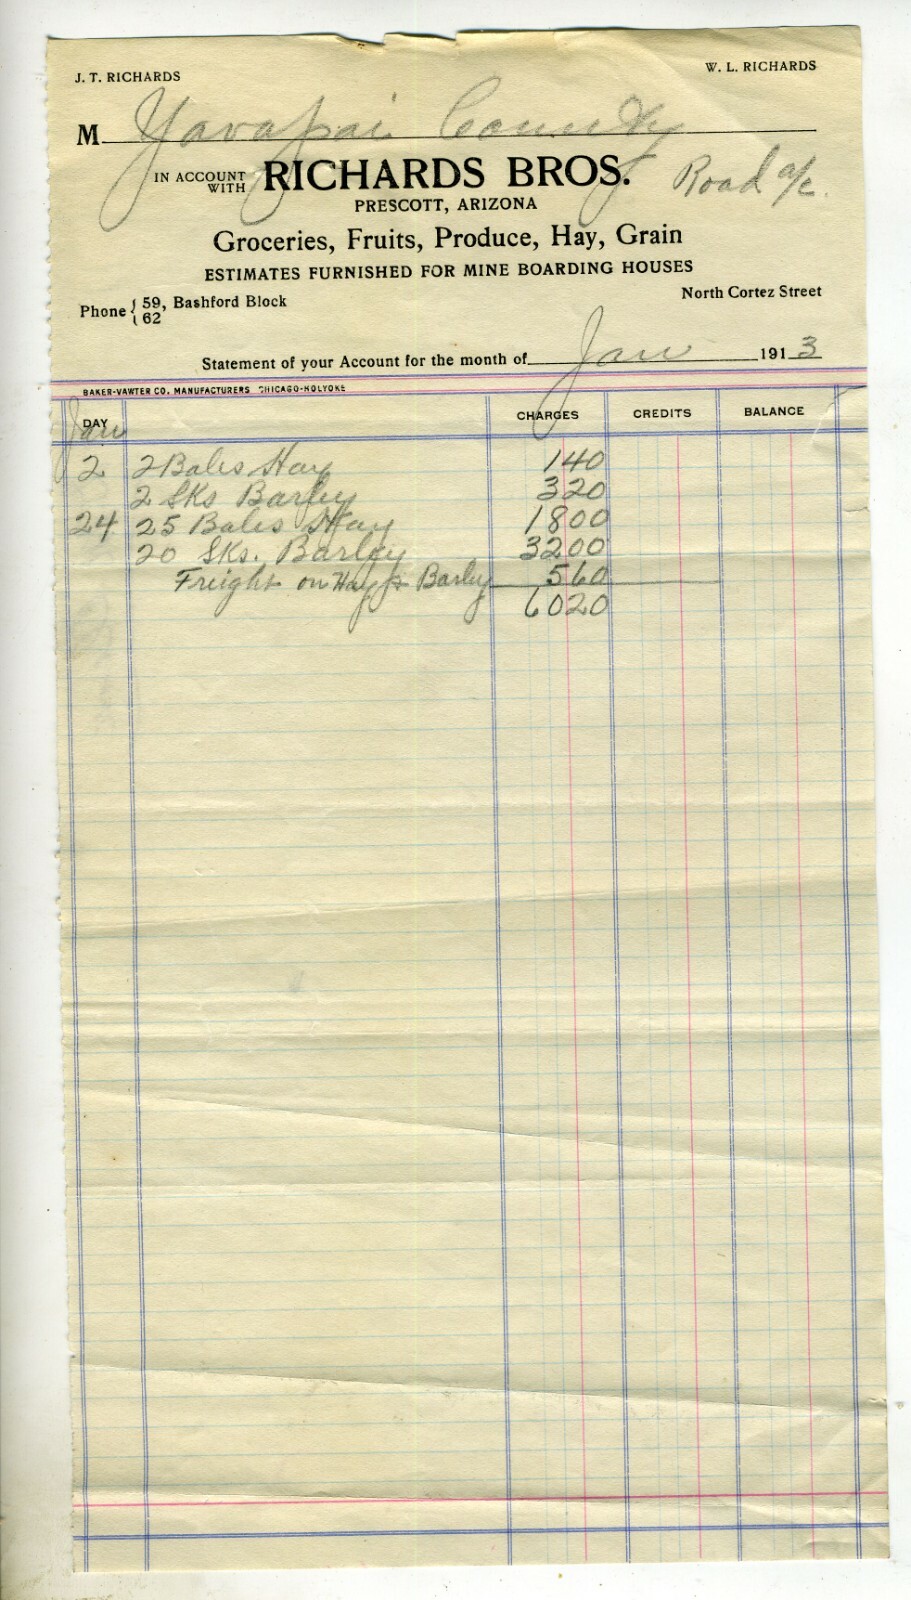 J. T. RICHARDS
W. L. RICHARDS
M Yavapai County
IN ACCOUNT WITH RICHARDS BROS. Road a/c.
PRESCOTT, ARIZONA
Groceries, Fruits, Produce, Hay, Grain
ESTIMATES FURNISHED FOR MINE BOARDING HOUSES
Phone { 59, 62 Bashford Block
North Cortez Street
Statement of your Account for the month of Jan 1913
BAKER-VAWTER CO. MANUFACTURERS CHICAGO-HOLYOKE
DAY CHARGES CREDITS BALANCE
Jan
2 2 Bales Hay 140
2 Sks Barley 320
24 25 Bales Hay 1800
20 Sks. Barley 3200
Freight on Hay & Barley 560
6020